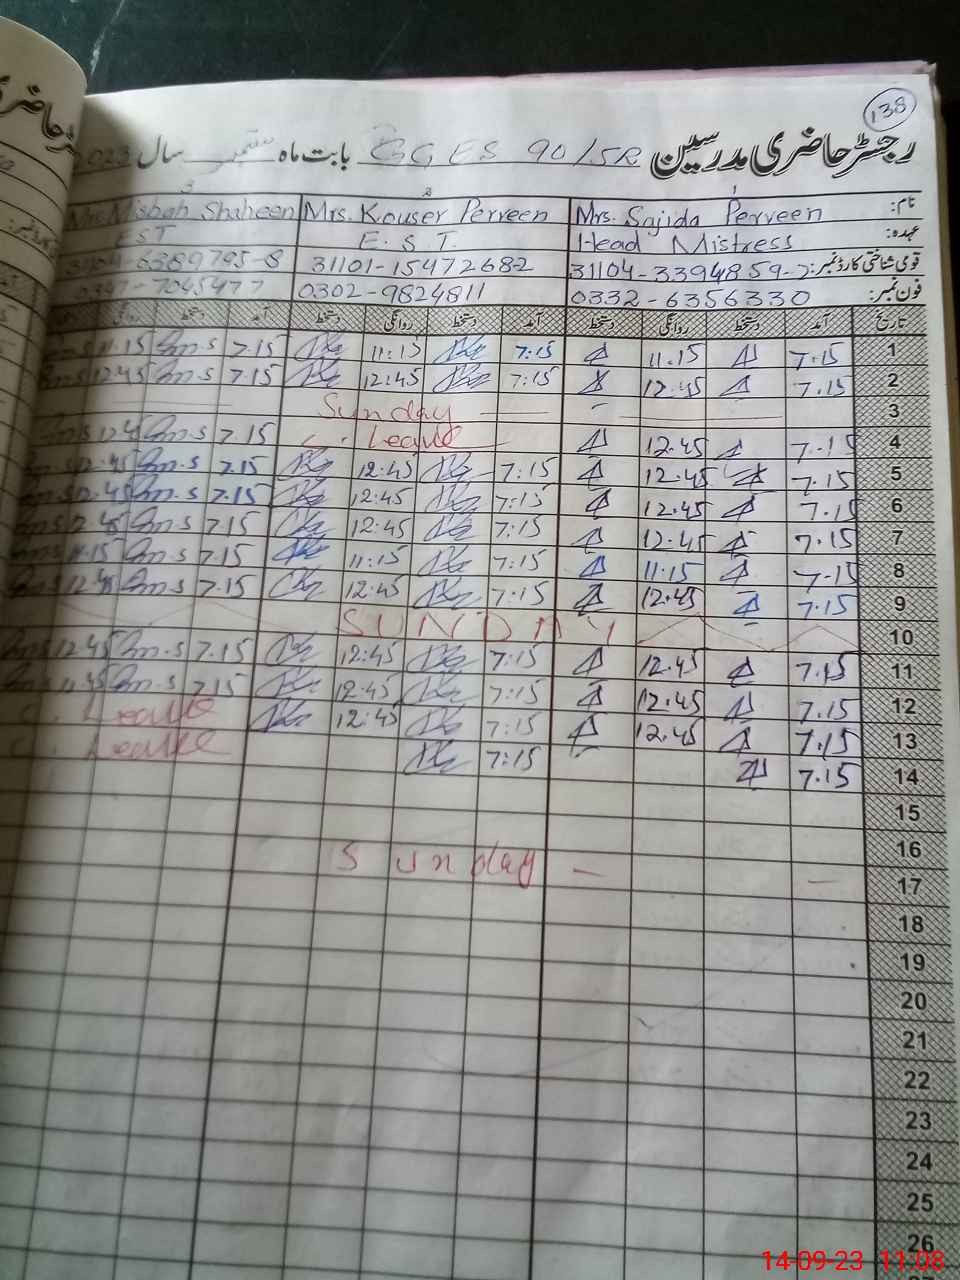 138
رجسٹر حاضری مدرسین GGES 90/5R بابت ماہ ستمبر سال 2023
3 2 1
Mrs. Misbah Shaheen Mrs. Kouser Perveen Mrs. Sajida Perveen نام:
EST E.S.T. Head Mistress عہدہ:
31101-15472682 قومی شناختی کارڈ نمبر:
0302-9824811 0332-6356330 فون نمبر:
روانگی دستخط آمد دستخط روانگی دستخط آمد دستخط روانگی دستخط آمد تاریخ
11.15 7.15 11:15 7:15 11.15 7.15 1
12.45 7.15 12:45 7:15 12.45 7.15 2
Sunday 3
7.15 Leave 12.45 7.15 4
12.45 7.15 12:45 7:15 12.45 7.15 5
12.45 7.15 12:45 7:15 12.45 7.15 6
12.45 7.15 12:45 7:15 12.45 7.15 7
11.15 7.15 11:15 7:15 11.15 7.15 8
12.45 7.15 12:45 7:15 12.45 7.15 9
SUNDAY 10
12.45 7.15 12:45 7:15 12.45 7.15 11
7.15 12:45 7:15 12.45 7.15 12
C. Leave 12:45 7:15 12.45 7.15 13
C. Leave 7:15 7.15 14
15
16
Sunday 17
18
19
20
21
22
23
24
25
26
14-09-23 11:08